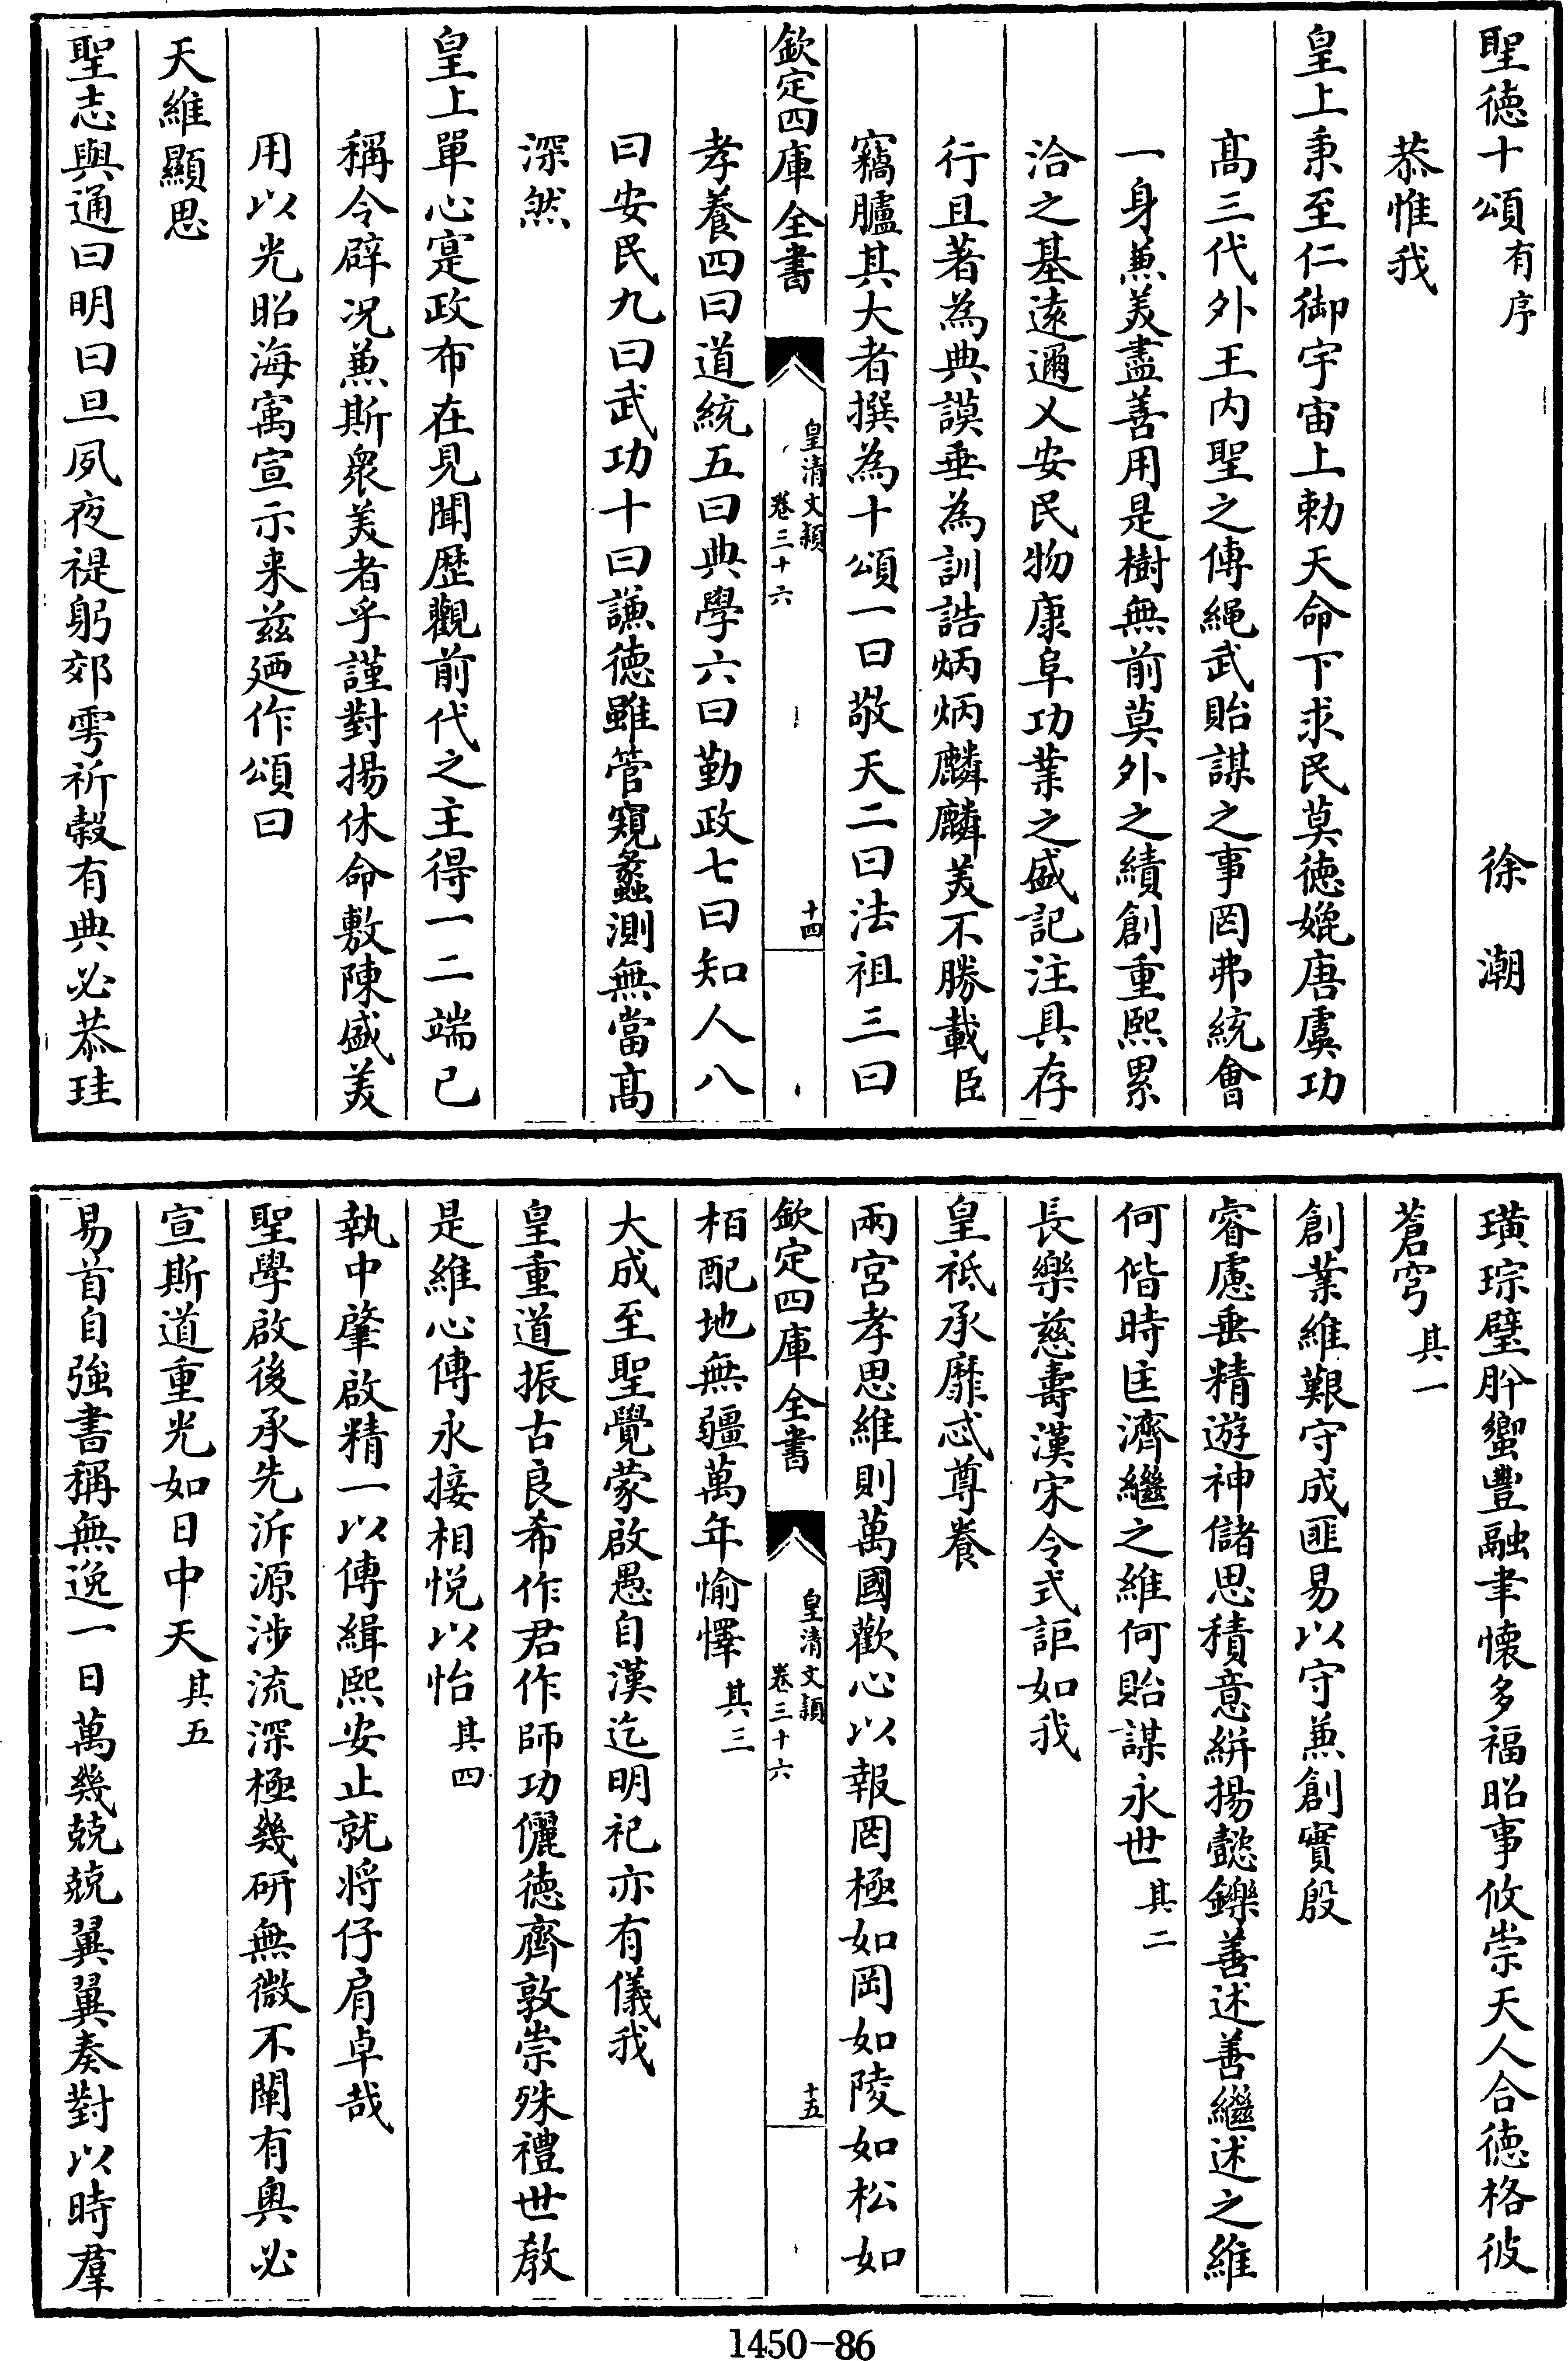 聖德十頌有序 徐潮
恭惟我
皇上秉至仁御宇宙上勅天命下求民莫德媲唐虞功
髙三代外王内聖之傳繩武貽謀之事罔弗統會
一身兼美盡善用是樹無前莫外之績創重熙累
洽之基遠邇乂安民物康阜功業之盛記注具存
行且著為典謨垂為訓誥炳炳麟麟美不勝載臣
竊臚其大者撰為十頌一曰敬天二曰法祖三曰
欽定四庫全書 皇清文頴 卷三十六 十四
孝養四曰道統五曰典學六曰勤政七曰知人八
曰安民九曰武功十曰謙德雖管窺蠡測無當髙
深然
皇上單心寔政布在見聞歴觀前代之主得一二端已
稱令辟况兼斯衆美者乎謹對揚休命敷陳盛美
用以光昭海㝢宣示来兹廼作頌曰
天維顯思
聖志與通曰明曰旦夙夜禔躬郊雩祈穀有典必恭珪
璜琮璧肸蠁豐融聿懷多福昭事攸崇天人合德格彼
蒼穹其一
創業維艱守成匪易以守兼創實殷
睿慮垂精遊神儲思積意絣揚懿鑠善述善繼述之維
何偕時匡濟繼之維何貽謀永世其二
長樂慈壽漢宋令式詎如我
皇祗承靡忒尊養
兩宮孝思維則萬國歡心以報罔極如岡如陵如松如
欽定四庫全書 皇清文頴 卷三十六 十五
栢配地無疆萬年愉懌其三
大成至聖覺蒙啟愚自漢迄明祀亦有儀我
皇重道振古良希作君作師功儷德齊敦崇殊禮世教
是維心傳永接相悦以怡其四
執中肇啟精一以傳緝熙安止就將仔肩卓哉
聖學啟後承先泝源涉流深極幾研無微不闡有奥必
宣斯道重光如日中天其五
易首自強書稱無逸一日萬幾兢兢翼翼奏對以時羣
1450-86